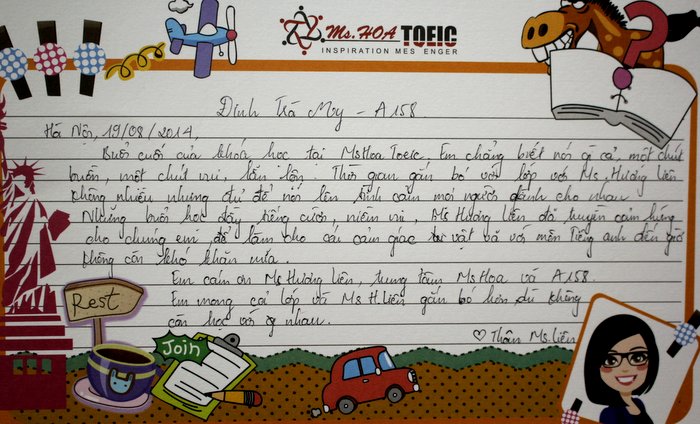 Ms.HOA TOEIC
INSPIRATION MES ENGER
Đinh Trà My - A158.
Hà Nội, 19/08/2014,
Buổi cuối của khóa học tại MsHoa Toeic. Em chẳng biết nói gì cả, một chút
buồn, một chút vui, lẫn lộn. Thời gian gắn bó với lớp với Ms.Hương Liên
không nhiều nhưng đủ để nói lên tình cảm mọi người dành cho nhau.
Những buổi học đầy tiếng cười, niềm vui, Ms Hương Liên đã truyền cảm hứng
cho chúng em, để làm cho cái cảm giác vật vã với môn Tiếng anh đến giờ
không còn khó khăn nữa.
Em cảm ơn Ms Hương Liên, trung tâm MsHoa và A158.
Em mong cả lớp và Ms H.Liên gắn bó hơn, dù không
còn học với nhau.
♡ Thân Ms.Liên
Rest
Join